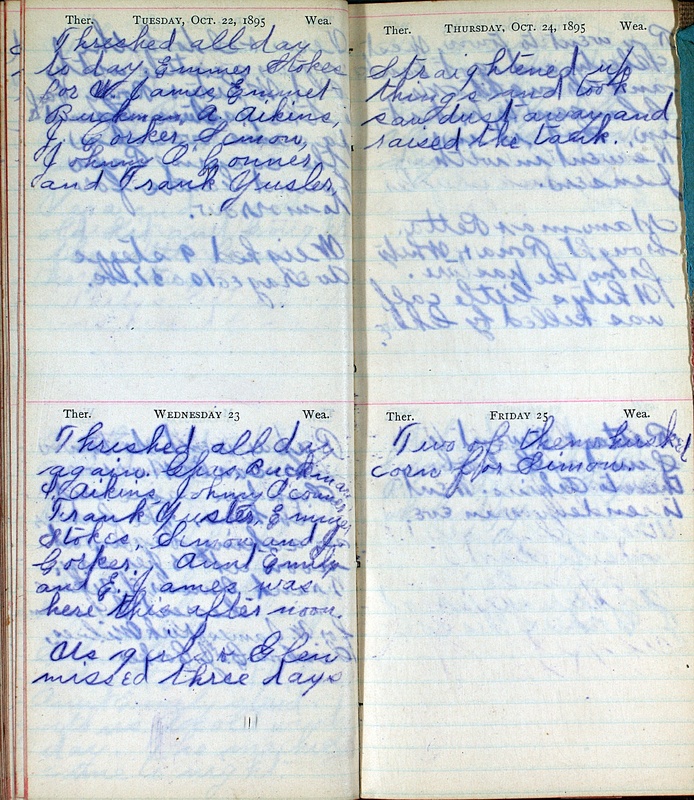 Ther. TUESDAY, OCT. 22, 1895 Wea.
Threshed all day
to day, Emmer Stokes
for W. James Emmet
Buckman A. Aikins,
J. Gorker Simon,
Johnny O'Conner,
and Frank Yusler,
Ther. WEDNESDAY 23 Wea.
Threshed all day
again. Buckman
Aikins, Johny O'coner
Frank Yusler, Emmer
Stokes, Simon and J.
Gorker. Aunt Emily
and E. James was
here this after noon.
Us girls & Glen
missed three days
Ther. THURSDAY, OCT. 24, 1895 Wea.
Straightened up
things and took
sawdust away and
raised the tank.
Ther. FRIDAY 25 Wea.
Two of them husked
corn for Simon.